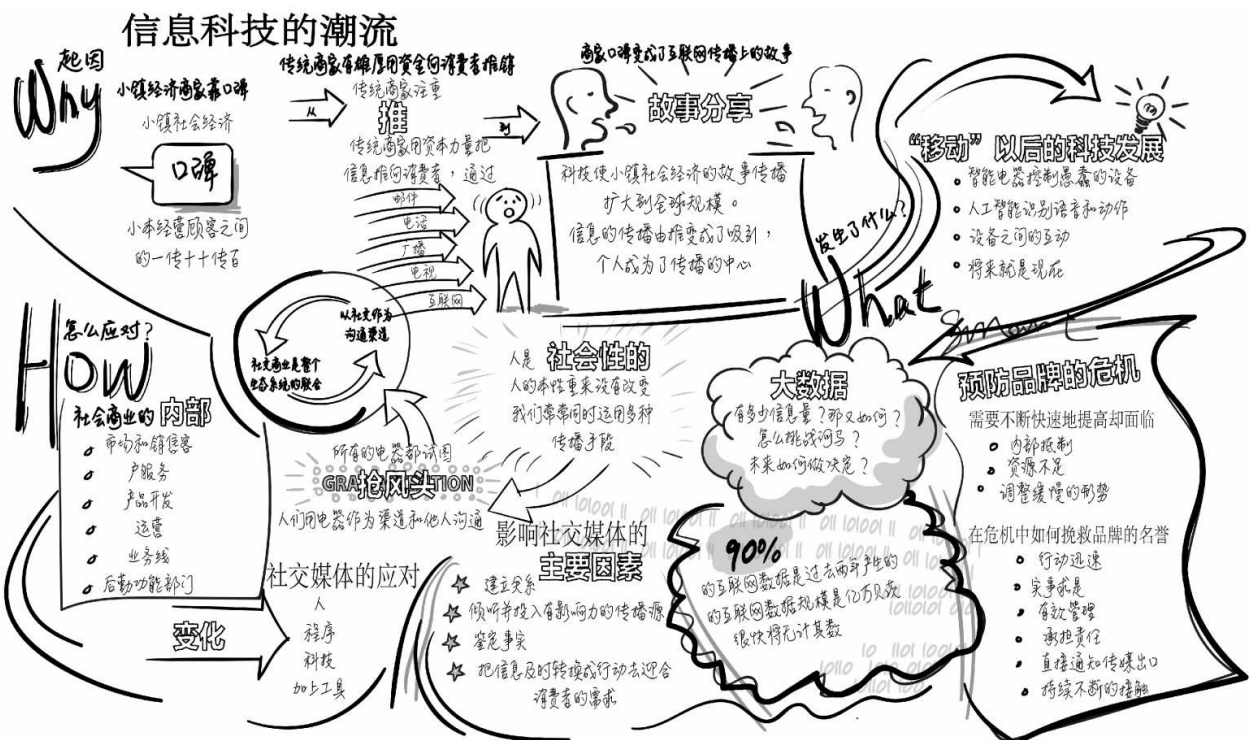 信息科技的潮流
Why
起因
小镇经济商家靠口碑
小镇社会经济
口碑
小本经营顾客之间
的一传十十传百
从
传统商家有雄厚用资金向消费者推销
传统商家注重
推
传统商家用资本力量把
信息推向消费者，通过
邮件
电话
广播
电视
互联网
到
商家口碑变成了互联网传播上的故事
故事分享
科技使小镇社会经济的故事传播
扩大到全球规模。
信息的传播由推变成了吸引，
个人成为了传播的中心
发生了什么？
What
“移动”以后的科技发展
智能电器控制愚蠢的设备
人工智能识别语音和动作
设备之间的互动
将来就是现在
How
怎么应对？
社会商业的内部
市场和销售客
户服务
产品开发
运营
业务线
后勤功能部门
变化
以社交作为
沟通渠道
社交商业是整个
生态系统的联合
所有的电器都试图
GRA抢风头TION
人们用电器作为渠道和他人沟通
社交媒体的应对
人
程序
科技
加上工具
人是 社会性的
人的本性重来没有改变
我们常常同时运用多种
传播手段
影响社交媒体的
主要因素
建立关系
倾听并投入有影响力的传播源
鉴定事实
把信息及时转换成行动去迎合
消费者的需求
大数据
有多少信息量？那又如何？
怎么挑战河马？
未来如何做决定？
90%
的互联网数据是过去两年产生的
的互联网数据规模是亿万兆字
很快将无计其数
Smart
预防品牌的危机
需要不断快速地提高却面临
内部抵制
资源不足
调整缓慢的形势
在危机中如何挽救品牌的名誉
行动迅速
实事求是
有效管理
承担责任
直接通知传媒出口
持续不断的接触